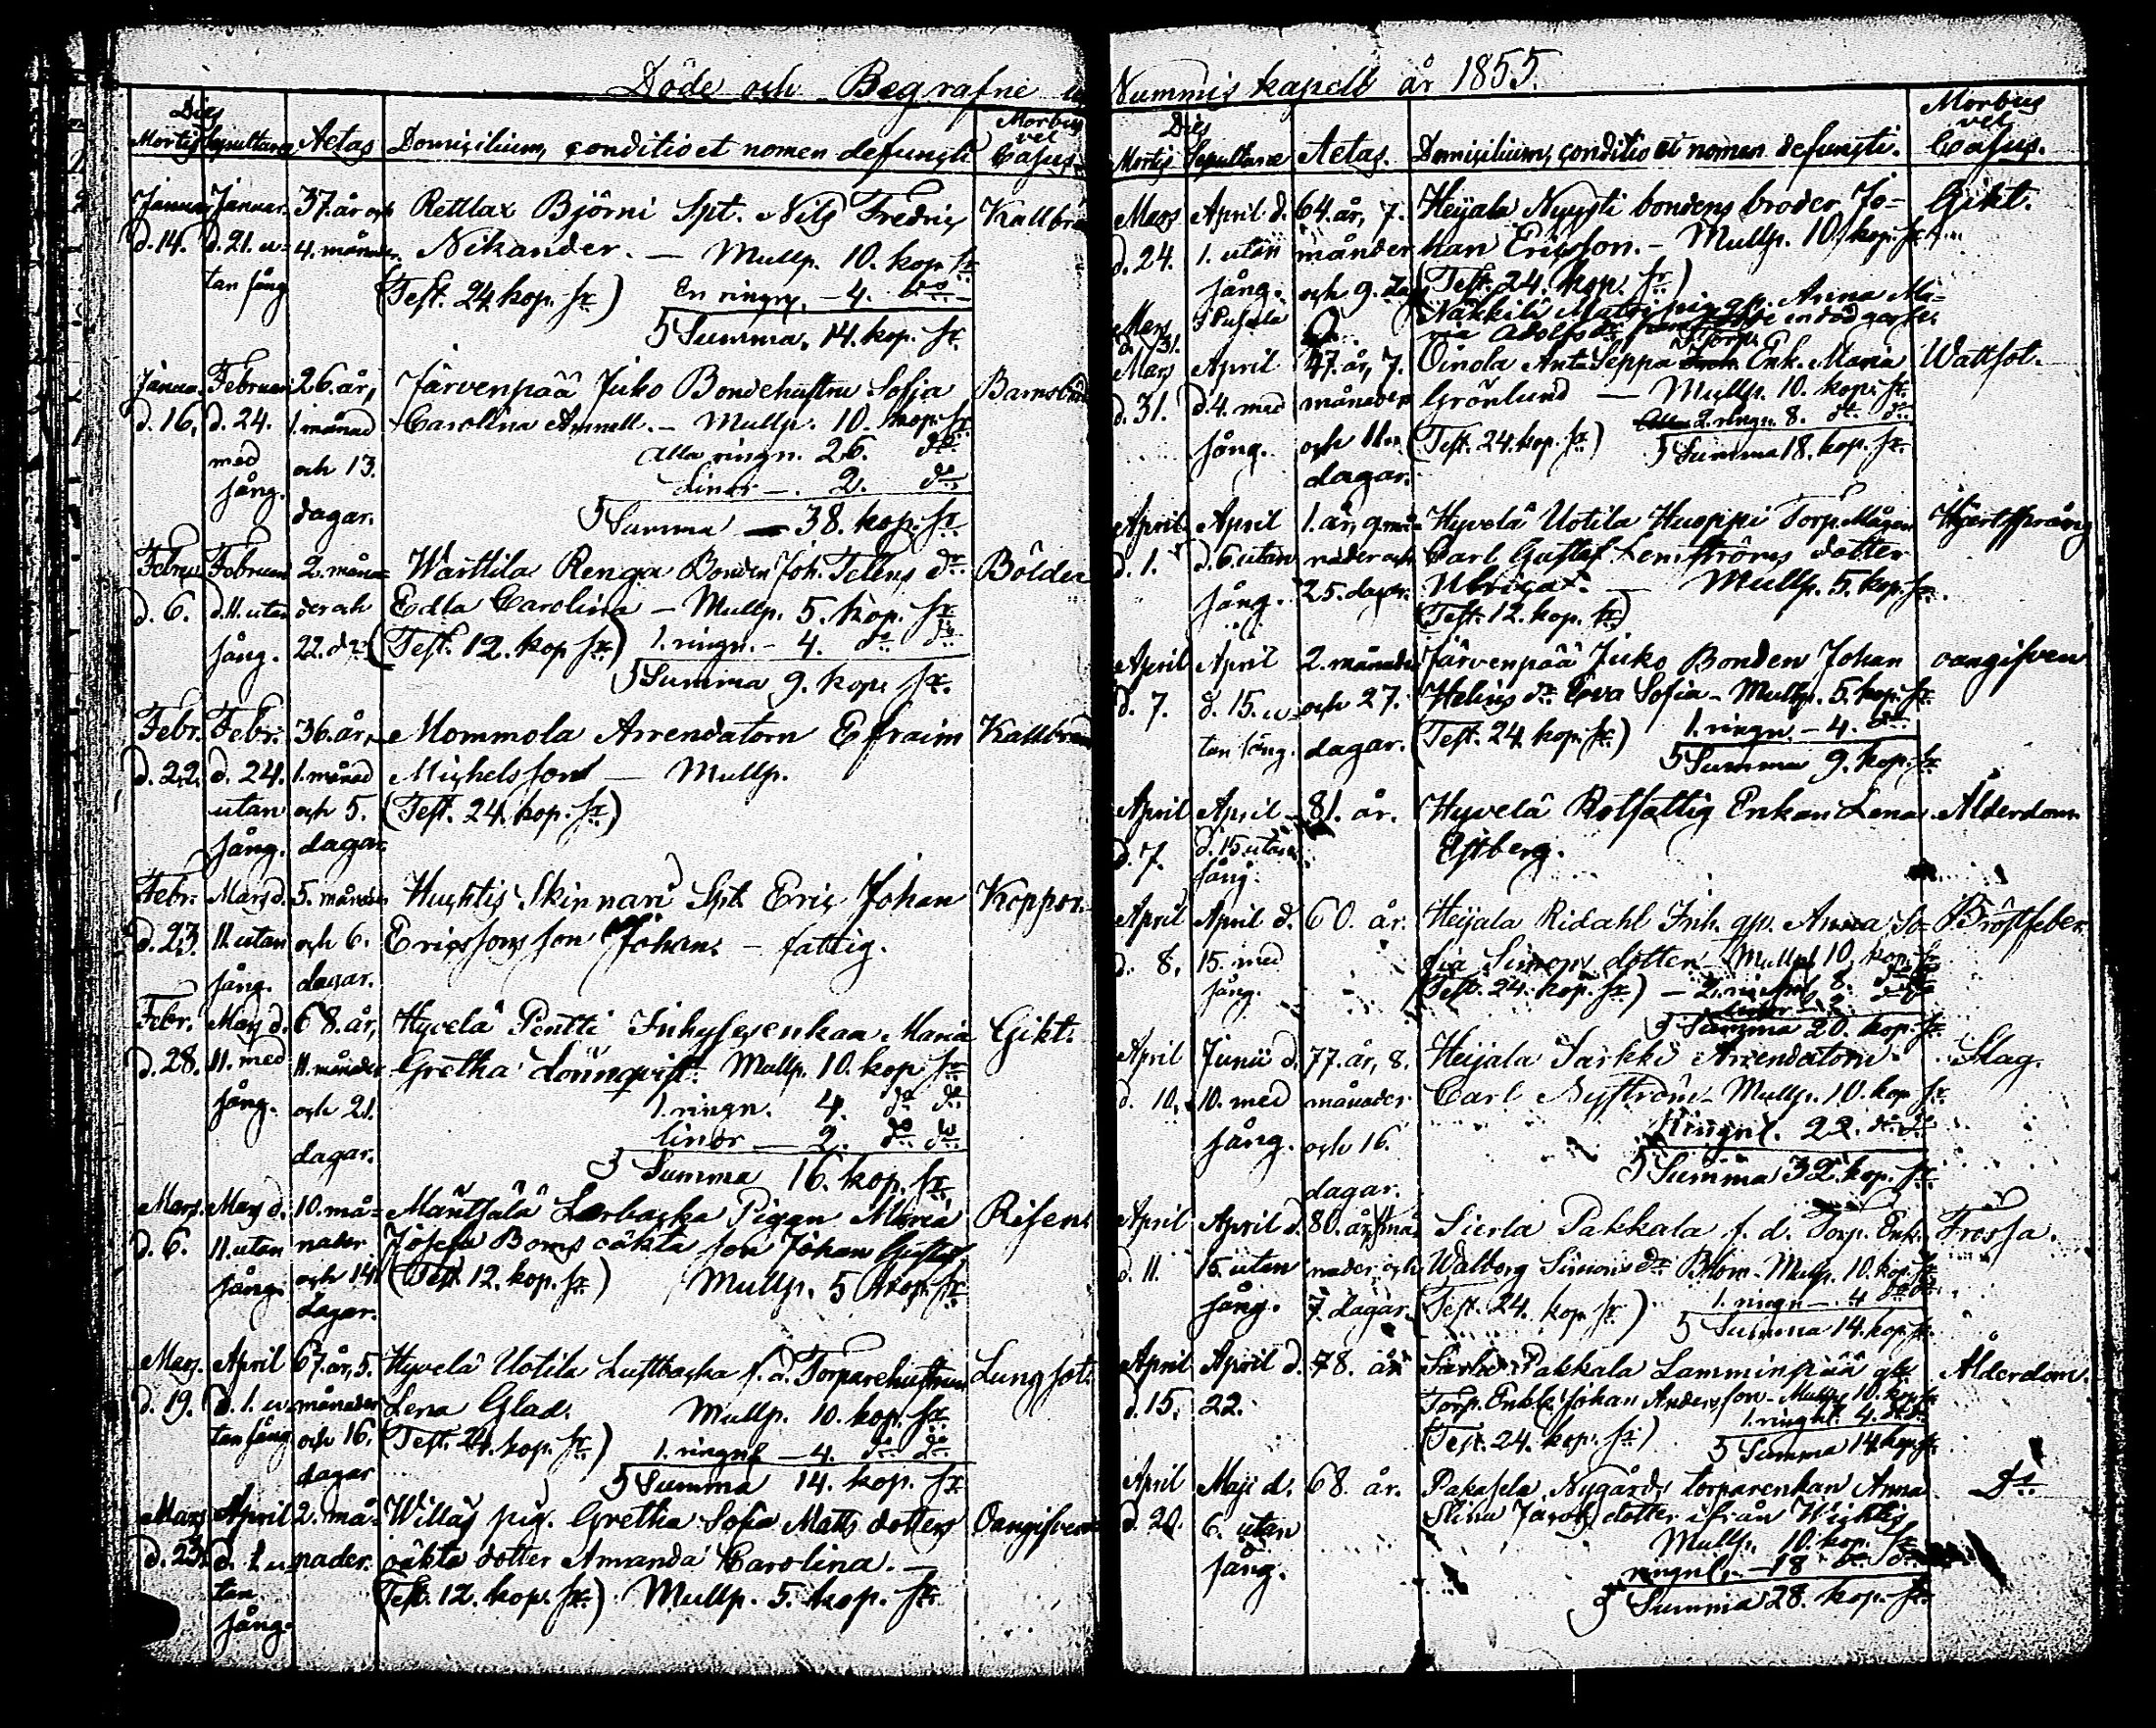 Döde och Begrafne
Dies
Mortis Sepulturæ Aetas Domicilium, conditio et nomen defuncti Morbus vel Casus
Januar. Januar. 37. år och Rettlax Björni Spt. Nils Fredric Kallbra
d. 14. d. 21. u- 4. månader. Nikander. — Mullp. 10. kop. sr
tan sång (Test. 24. kop. sr) En ringn. — 4. do
Summa. 14. kop. sr.
Janua. Februari 26. år, Järvenpää Juko Bondehustru Sofia Barnsbörd
d. 16. d. 24. 1. månad Carolina — Mullp. 10. kop. sr
med och 13. alla ringn. 26. do
sång. dagar. Linor — 2. do
Summa — 38. kop. sr
Febru. Februari 2. måna- Warttila Renga Bonden Joh. Tellens dr Bölder
d. 6. d. 11. utan der och Edla Carolina — Mullp. 5. kop. sr
sång. 22. dar (Test. 12. kop sr) 1. ringn. - 4. do do
Summa 9. kop. sr.
Febr. Febr. 36. år, Mommola Arrendatorn Efraim Kallbran
d. 22. d. 24. 1. månad Michelsson — Mullp.
utan och 5. (Test. 24. kop. sr)
sång. dagar.
Febr. Mars d. 5. månader Huchtis Skinnari Spt Eric Johan Koppor.
d. 23. 11. utan och 6. Ericssons son Johan. — fattig.
sång. dagar.
Febr. Mars d. 68. år, Hyvelä Pentti Inhysesenkan Maria Gikt.
d. 28. 11. med 11. månader Gretha Lönnqvist. Mullp. 10. kop sr
sång. och 21. 1. ringn. 4. do do
dagar. linor — 2. do do
Summa 16. kop. sr
Mars. Mars d. 10. må- Mäntsälä Lerbacka Pigan Maria Risen.
d. 6. 11. utan nader Josefa Boms oäkta son Johan Gustaf
sång. och 14. (Test. 12. kop. sr) Mullp. 5 kop. sr
dagar.
Mars. April 67. år, 5. Hyvelä Uotila Luftbacka f. d. Torparehustrun Lungsot.
d. 19. d. 1. u- månader Lena Glad. Mullp. 10. kop. sr
tan sång och 16. (Test. 24. kop. sr) 1. ringn — 4. do do
dagar Summa 14. kop. sr
Mars April 2. må- Willäs pig. Gretha Sofia Matts dotters Oangifven
d. 23. d. 1. u- nader. oäkta dotter Amanda Carolina. —
tan (Test. 12. kop. sr) Mullp. 5. kop. sr
sång.
Nummis kapell år 1855.
Dies
Mortis Sepulturæ Aetas. Domicilium, conditio et nomen defuncti. Morbus vel Casus.
Mars April d. 64. år, 7. Heijala Nyysti bondens broder Jo- Gikt.
d. 24. 1. utan månader han Ericsson. — Mullp. 10. kop. sr
sång. och 9. (Test. 24. kop. sr)
Mars Näkkilä Anna Ma-
d. 31. ria Adolfs
Mars April 47. år, 7. Oinola Seppä Enk. Maria Wattsot.
d. 31. d. 4. med månader Grönlund — Mullp. 10. kop. sr
sång. och 11. (Test. 24. kop. sr) 2. ringn. 8. do do
dagar. Summa 18. kop. sr
April April 1. år, 9. må- Hyvelä Uotila Huoppi Torp. Mågen Hjertsprång
d. 1. d. 6. utan nader och Carl Gustaf Lemströms dotter
sång. 25. dagar. Ulrica. — Mullp. 5. kop. sr.
(Test. 12. kop. sr)
April April 2. månader Järvenpää Juko Bonden Johan oangifven
d. 7. d. 15. u- och 27. Helins dr Eva Sofia — Mullp. 5. kop. sr
tan sång. dagar. (Test. 24. kop. sr) 1. ringn. — 4. do
Summa 9. kop. sr
April April 81. år. Hyvelä Rotfattig Enkan Lena Ålderdom.
d. 7. d. 15. utan Estberg.
sång.
April April d. 60. år. Heijala Ridahl Inh. gp. Anna So- Bröstfeber
d. 8. 15. med fia Simons dotter Mullp. 10. kop. sr
sång. (Test. 24. kop. sr) — 2. ringn. 8. do
2. do
Summa 20. kop. sr
April Junii d. 77. år, 8. Heijala Sarkki Arrendatorn Slag.
d. 10. 10. med månader Carl Nyström. Mullp. 10. kop sr
sång. och 16. ringn. 22. do
dagar. Summa 32. kop. sr
April April d. 80. år, må- Sierla Pakkala f. d. Torp. Enk. Frossa.
d. 11. 15. utan nader och Walborg Simons dr Blom. Mullp. 10. kop. sr
sång. 7. dagar. (Test. 24. kop. sr) 1. ringn — 4 do do
Summa 14. kop. sr
April April d. 78. år Pakkala Lamminpää Ålderdom.
d. 15. 22. Torp. Enkl. Johan Andersson. Mullp. 10. kop. sr
1. ringn. 4. do
(Test. 24. kop. sr) Summa 14. kop. sr
April Maji d. 68. år. Pakasela Nygårds torparenkan Anna Do
d. 20. 6. utan Stina Jacobs dotter ifrån Wichtis
sång. Mullp. 10. kop. sr
ringn. — 18 do
Summa 28. kop. sr